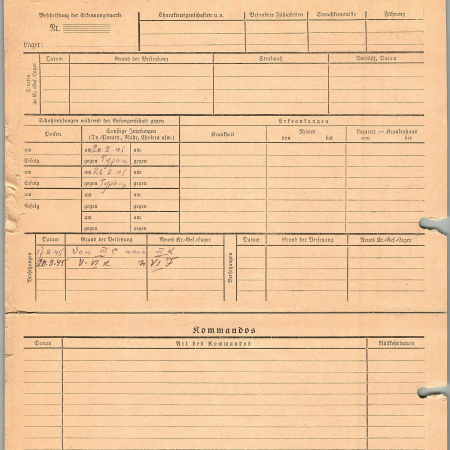 Beschriftung der Erkennungsmarke
Nr.
Lager:
Charaktereigenschaften u. a.
Besondere Fähigkeiten
Sprachkenntnisse
Führung
Strafen im Kr.-Gef.-Lager
Datum
Grund der Bestrafung
Strafmaß
Verbüßt, Datum
Schutzimpfungen während der Gefangenschaft gegen
Erkrankungen
Pocken
Sonstige Impfungen
(Ty.-Paraty., Ruhr, Cholera usw.)
Krankheit
Revier
von bis
Lazarett — Krankenhaus
von bis
am am 20.2.45 am
Erfolg gegen Typh gegen
am am 28.2.45 am
Erfolg gegen Typh gegen
am am am
Erfolg gegen gegen
am am
gegen gegen
Versetzungen
Datum Grund der Versetzung Neues Kr.-Gef.-Lager
Versetzungen
Datum Grund der Versetzung Neues Kr.-Gef.-Lager
Von III C nach
Kommandos
Datum Art des Kommandos Rückkehrdatum